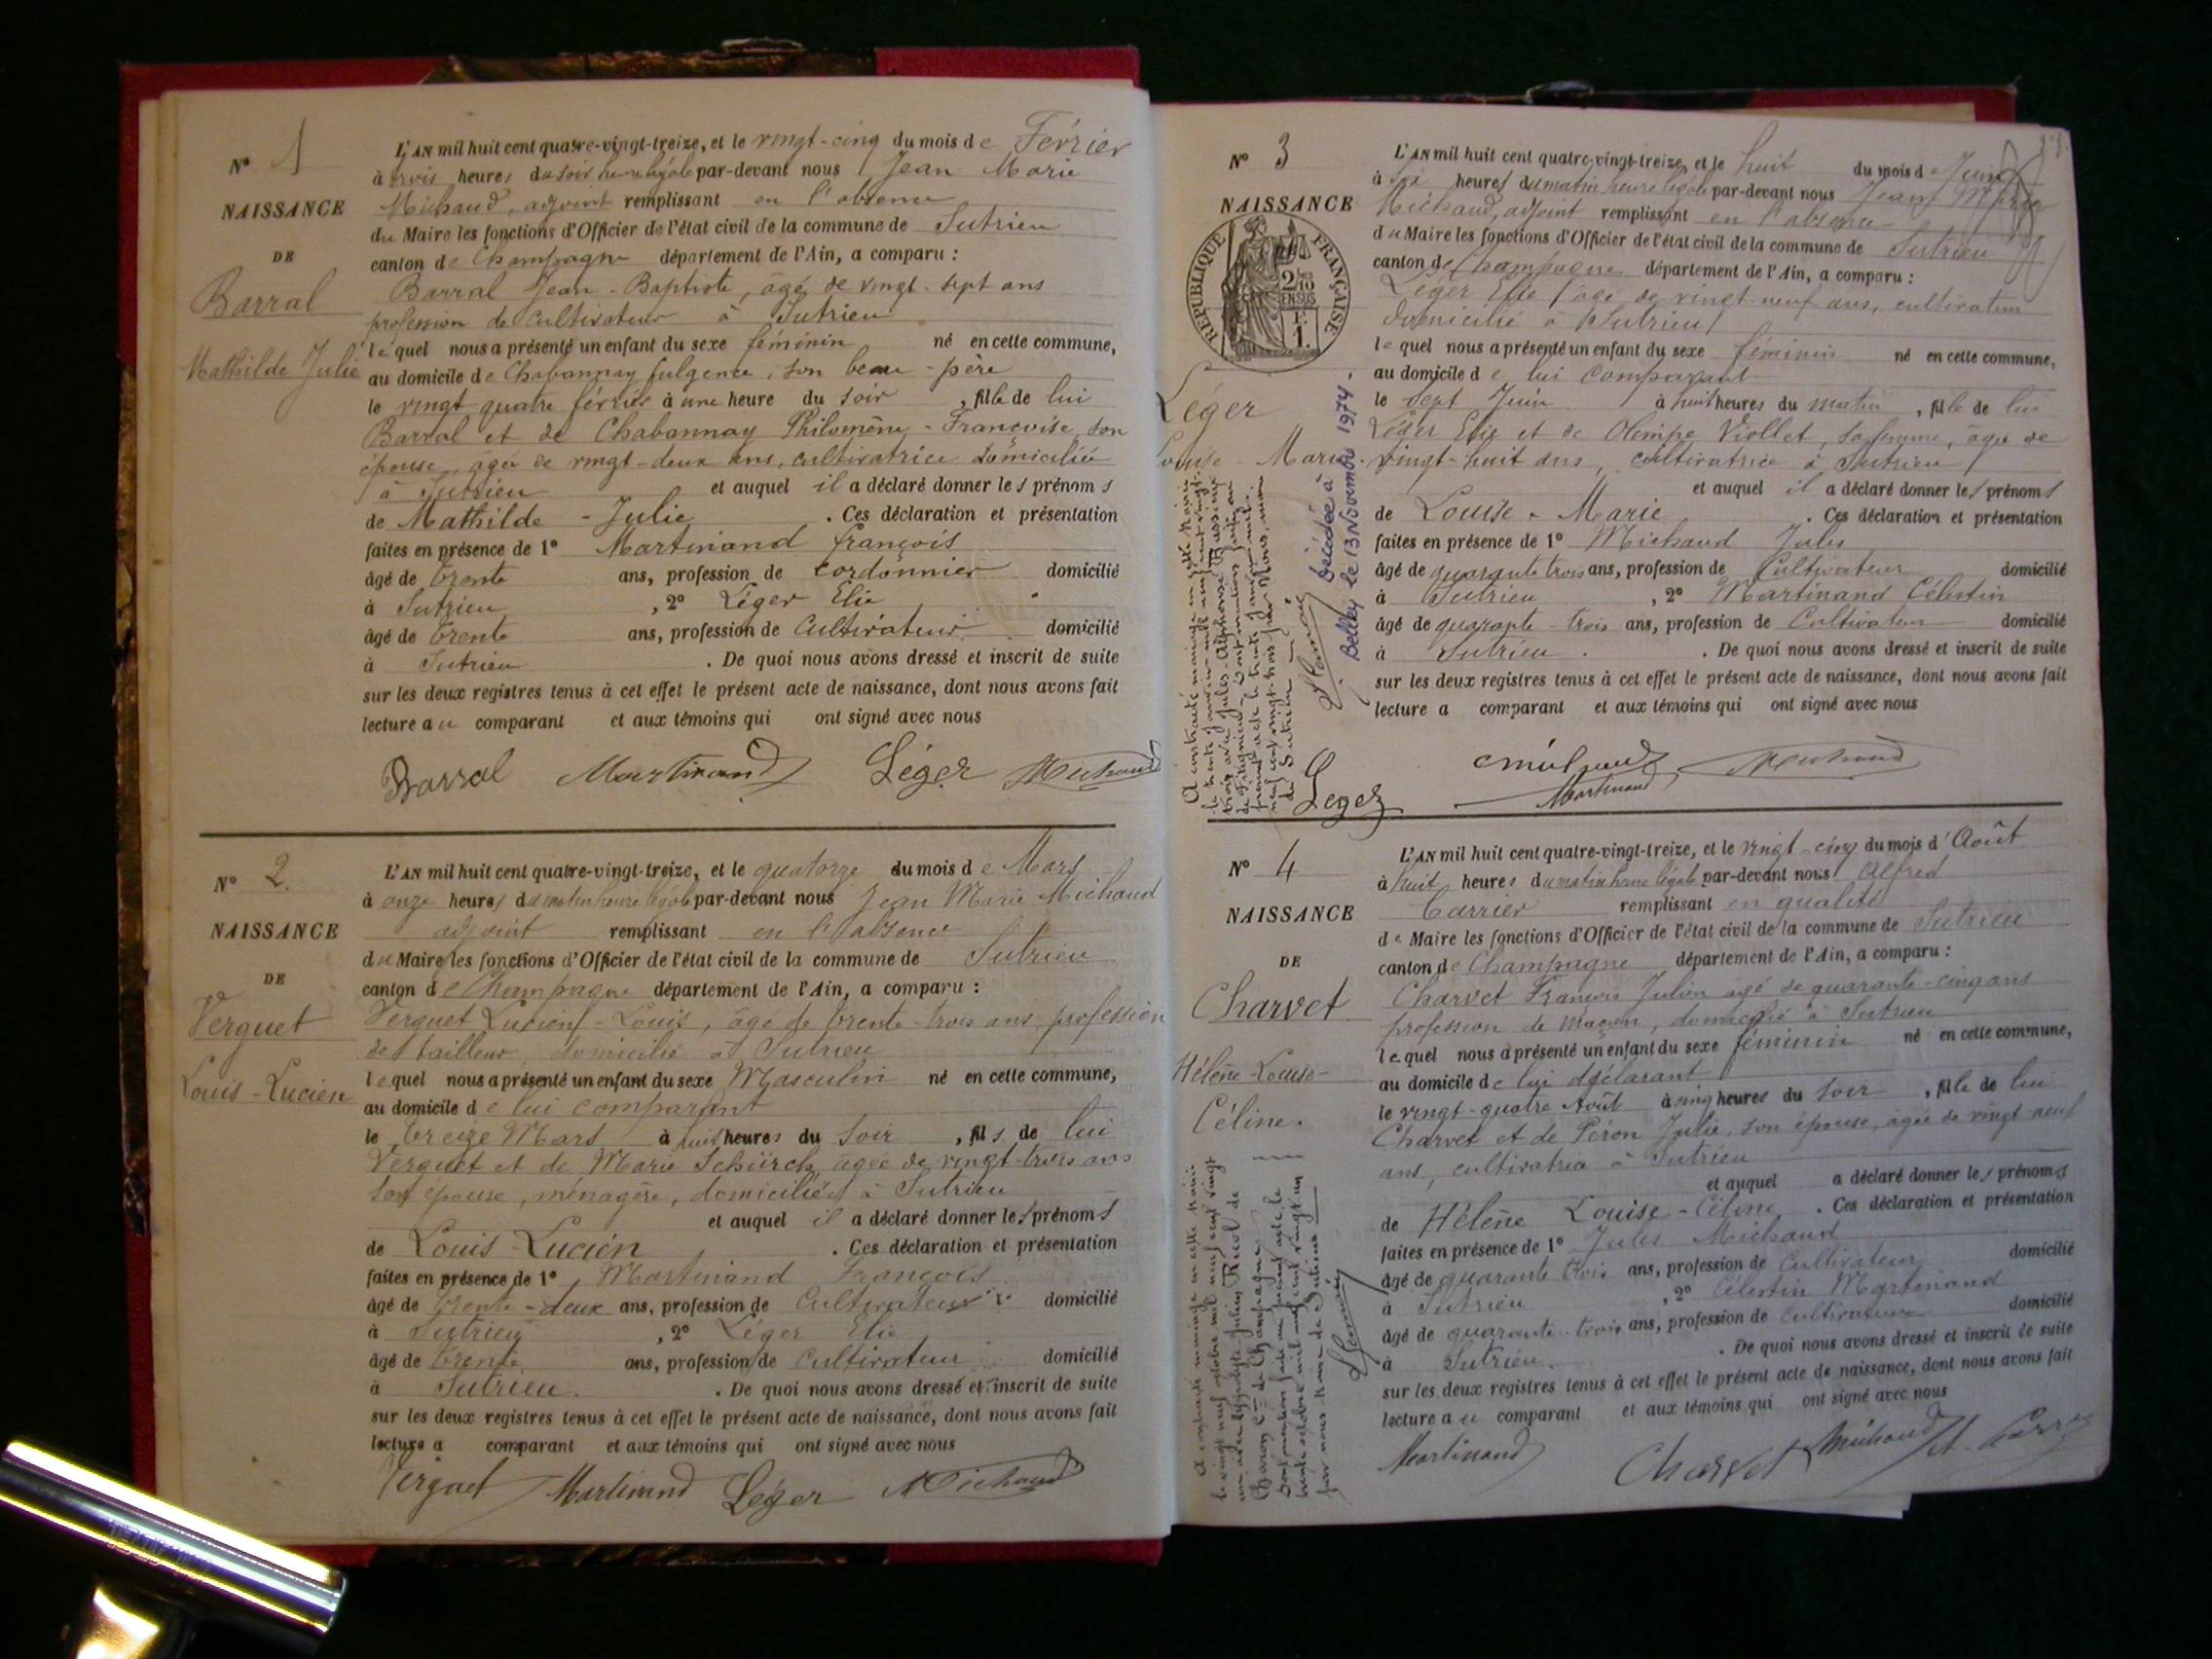 N° 1
NAISSANCE
DE
Barral
Mathilde Julie
L'AN mil huit cent quatre-vingt-treize, et le vingt-cinq du mois de Février
à trois heures du soir heure légale par-devant nous Jean Marie
Michaud, adjoint remplissant en l'absence
du Maire les fonctions d'Officier de l'état civil de la commune de Sutrieu
canton de Champagne département de l'Ain, a comparu :
Barral Jean-Baptiste, âgé de vingt-sept ans
profession de cultivateur à Sutrieu
lequel nous a présenté un enfant du sexe féminin né en cette commune,
au domicile de Chabannay fulgence, son beau-père
le vingt quatre février à une heure du soir, fille de lui
Barral et de Chabannay Philomène-Françoise son
épouse, âgée de vingt-deux ans, cultivatrice domiciliée
à Sutrieu et auquel il a déclaré donner les prénoms
de Mathilde-Julie. Ces déclaration et présentation
faites en présence de 1° Martinand françois
âgé de trente ans, profession de cordonnier domicilié
à Sutrieu, 2° Léger Elie
âgé de trente ans, profession de Cultivateur domicilié
à Sutrieu. De quoi nous avons dressé et inscrit de suite
sur les deux registres tenus à cet effet le présent acte de naissance, dont nous avons fait
lecture au comparant et aux témoins qui ont signé avec nous
Barral Martinand Léger Michaud
N° 2.
NAISSANCE
DE
Verguet
Louis-Lucien
L'AN mil huit cent quatre-vingt-treize, et le quatorze du mois de Mars
à onze heures du matin heure légale par-devant nous Jean Marie Michaud
adjoint remplissant en l'absence
du Maire les fonctions d'Officier de l'état civil de la commune de Sutrieu
canton de Champagne département de l'Ain, a comparu :
Verguet Lucien-Louis, âgé de trente-trois ans profession
de tailleur, domicilié à Sutrieu
lequel nous a présenté un enfant du sexe Masculin né en cette commune,
au domicile de lui comparant
le treize Mars à huit heures du soir, fils de lui
Verguet et de Marie Schürch, âgée de vingt-trois ans
son épouse, ménagère, domiciliés à Sutrieu
et auquel il a déclaré donner les prénoms
de Louis-Lucien. Ces déclaration et présentation
faites en présence de 1° Martinand François
âgé de trente-deux ans, profession de Cultivateur domicilié
à Sutrieu, 2° Léger Elie
âgé de trente ans, profession de Cultivateur domicilié
à Sutrieu. De quoi nous avons dressé et inscrit de suite
sur les deux registres tenus à cet effet le présent acte de naissance, dont nous avons fait
lecture a comparant et aux témoins qui ont signé avec nous
Verguet Martinand Léger Michaud
N° 3
NAISSANCE
REPUBLIQUE FRANÇAISE
2/10 EN SUS
1
Léger
Louise-Marie
L'AN mil huit cent quatre-vingt-treize, et le huit du mois de Juin
à six heures du matin heure légale par-devant nous Jean Marie
Michaud, adjoint remplissant en l'absence
du Maire les fonctions d'Officier de l'état civil de la commune de Sutrieu
canton de Champagne département de l'Ain, a comparu :
Léger Elie âgé de vingt-neuf ans, cultivateur
domicilié à Sutrieu
lequel nous a présenté un enfant du sexe féminin né en cette commune,
au domicile de lui comparant
le sept Juin à huit heures du matin, fille de lui
Léger Elie et de Olimpe Viollet, sa femme, âgée de
vingt-huit ans, cultivatrice à Sutrieu
et auquel il a déclaré donner les prénoms
de Louise-Marie. Ces déclaration et présentation
faites en présence de 1° Michaud Jules
âgé de quarante trois ans, profession de Cultivateur domicilié
à Sutrieu, 2° Martinand Célestin
âgé de quarante-trois ans, profession de Cultivateur domicilié
à Sutrieu. De quoi nous avons dressé et inscrit de suite
sur les deux registres tenus à cet effet le présent acte de naissance, dont nous avons fait
lecture a comparant et aux témoins qui ont signé avec nous
A contracté mariage en cette Mairie
Décédée à
Belley le 13 Novembre 1974.
Leger Michaud Michaud
Martinand
N° 4
NAISSANCE
DE
Charvet
Hélène Louise-
Céline.
L'AN mil huit cent quatre-vingt-treize, et le vingt-cinq du mois d'Août
à huit heures du matin heure légale par-devant nous Alfred
Carrier remplissant en qualité
de Maire les fonctions d'Officier de l'état civil de la commune de Sutrieu
canton de Champagne département de l'Ain, a comparu :
Charvet François Julien agé de quarante-cinq ans
profession de maçon, domicilié à Sutrieu
lequel nous a présenté un enfant du sexe féminin né en cette commune,
au domicile de lui déclarant
le vingt-quatre Août à cinq heures du soir, fille de lui
Charvet et de Péron Julie, son épouse, agée de vingt neuf
ans, cultivatrice à Sutrieu
et auquel a déclaré donner les prénoms
de Hélène Louise-Céline. Ces déclaration et présentation
faites en présence de 1° Jules Michaud
âgé de quarante trois ans, profession de Cultivateur domicilié
à Sutrieu, 2° Célestin Martinand
âgé de quarante-trois ans, profession de cultivateur domicilié
à Sutrieu. De quoi nous avons dressé et inscrit de suite
sur les deux registres tenus à cet effet le présent acte de naissance, dont nous avons fait
lecture au comparant et aux témoins qui ont signé avec nous
A contracté mariage en cette Mairie
le vingt neuf octobre mil neuf cent vingt
Martinand Charvet Michaud